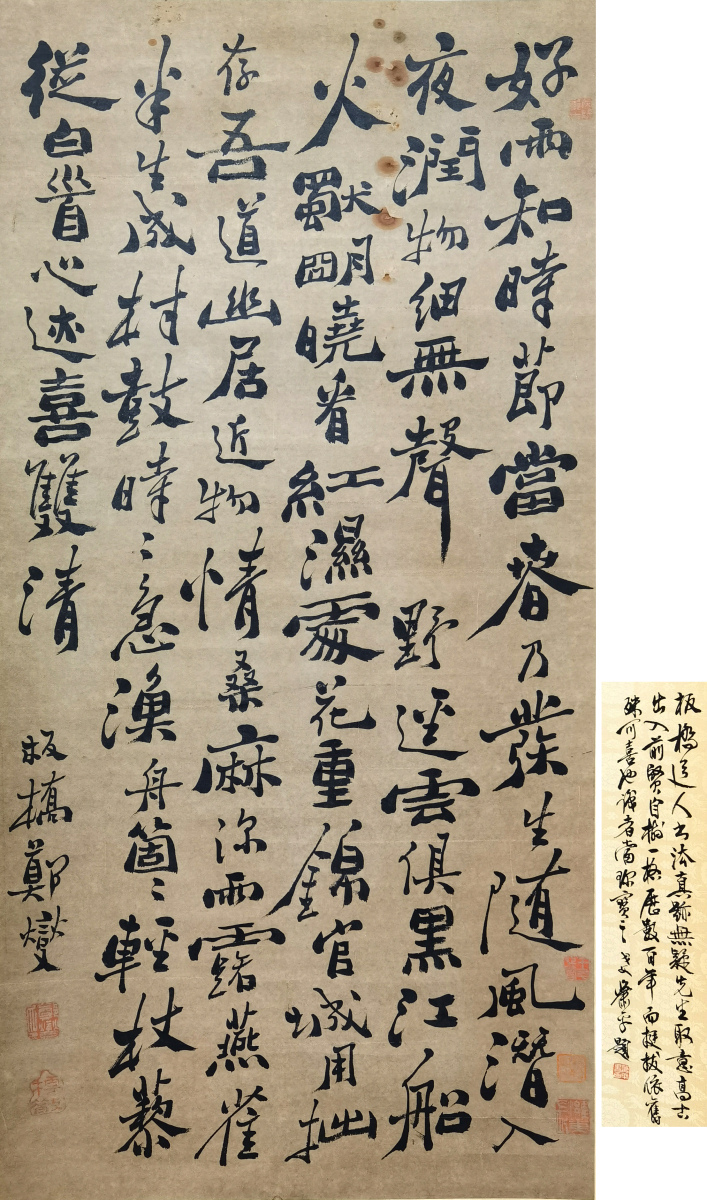 好雨知時節當春乃發生隨風潛入
夜潤物細無聲 野逕雲俱黑江船
火獨明曉看紅濕處花重錦官城用拙
存吾道幽居近物情桑麻深雨露燕雀
半生成村鼓時〻急漁舟箇〻輕杖藜
從白首心迹喜雙清
板橋鄭燮
板橋道人書法真跡無疑先生取意高古
出入前賢自樹一格歷數百年而挺拔依舊
殊可喜也識者當珍寶之 題